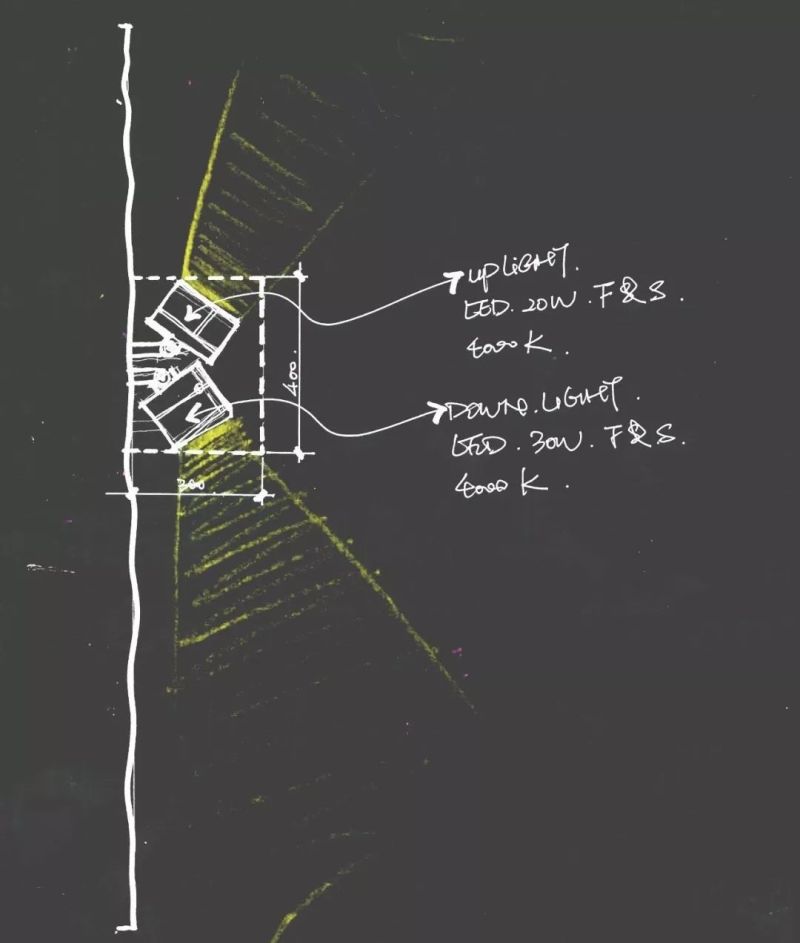 UPLIGHT.
LED. 20W. F&S.
4000K.
400.
DOWN. LIGHT.
LED. 30W. F&S.
4000K.
300